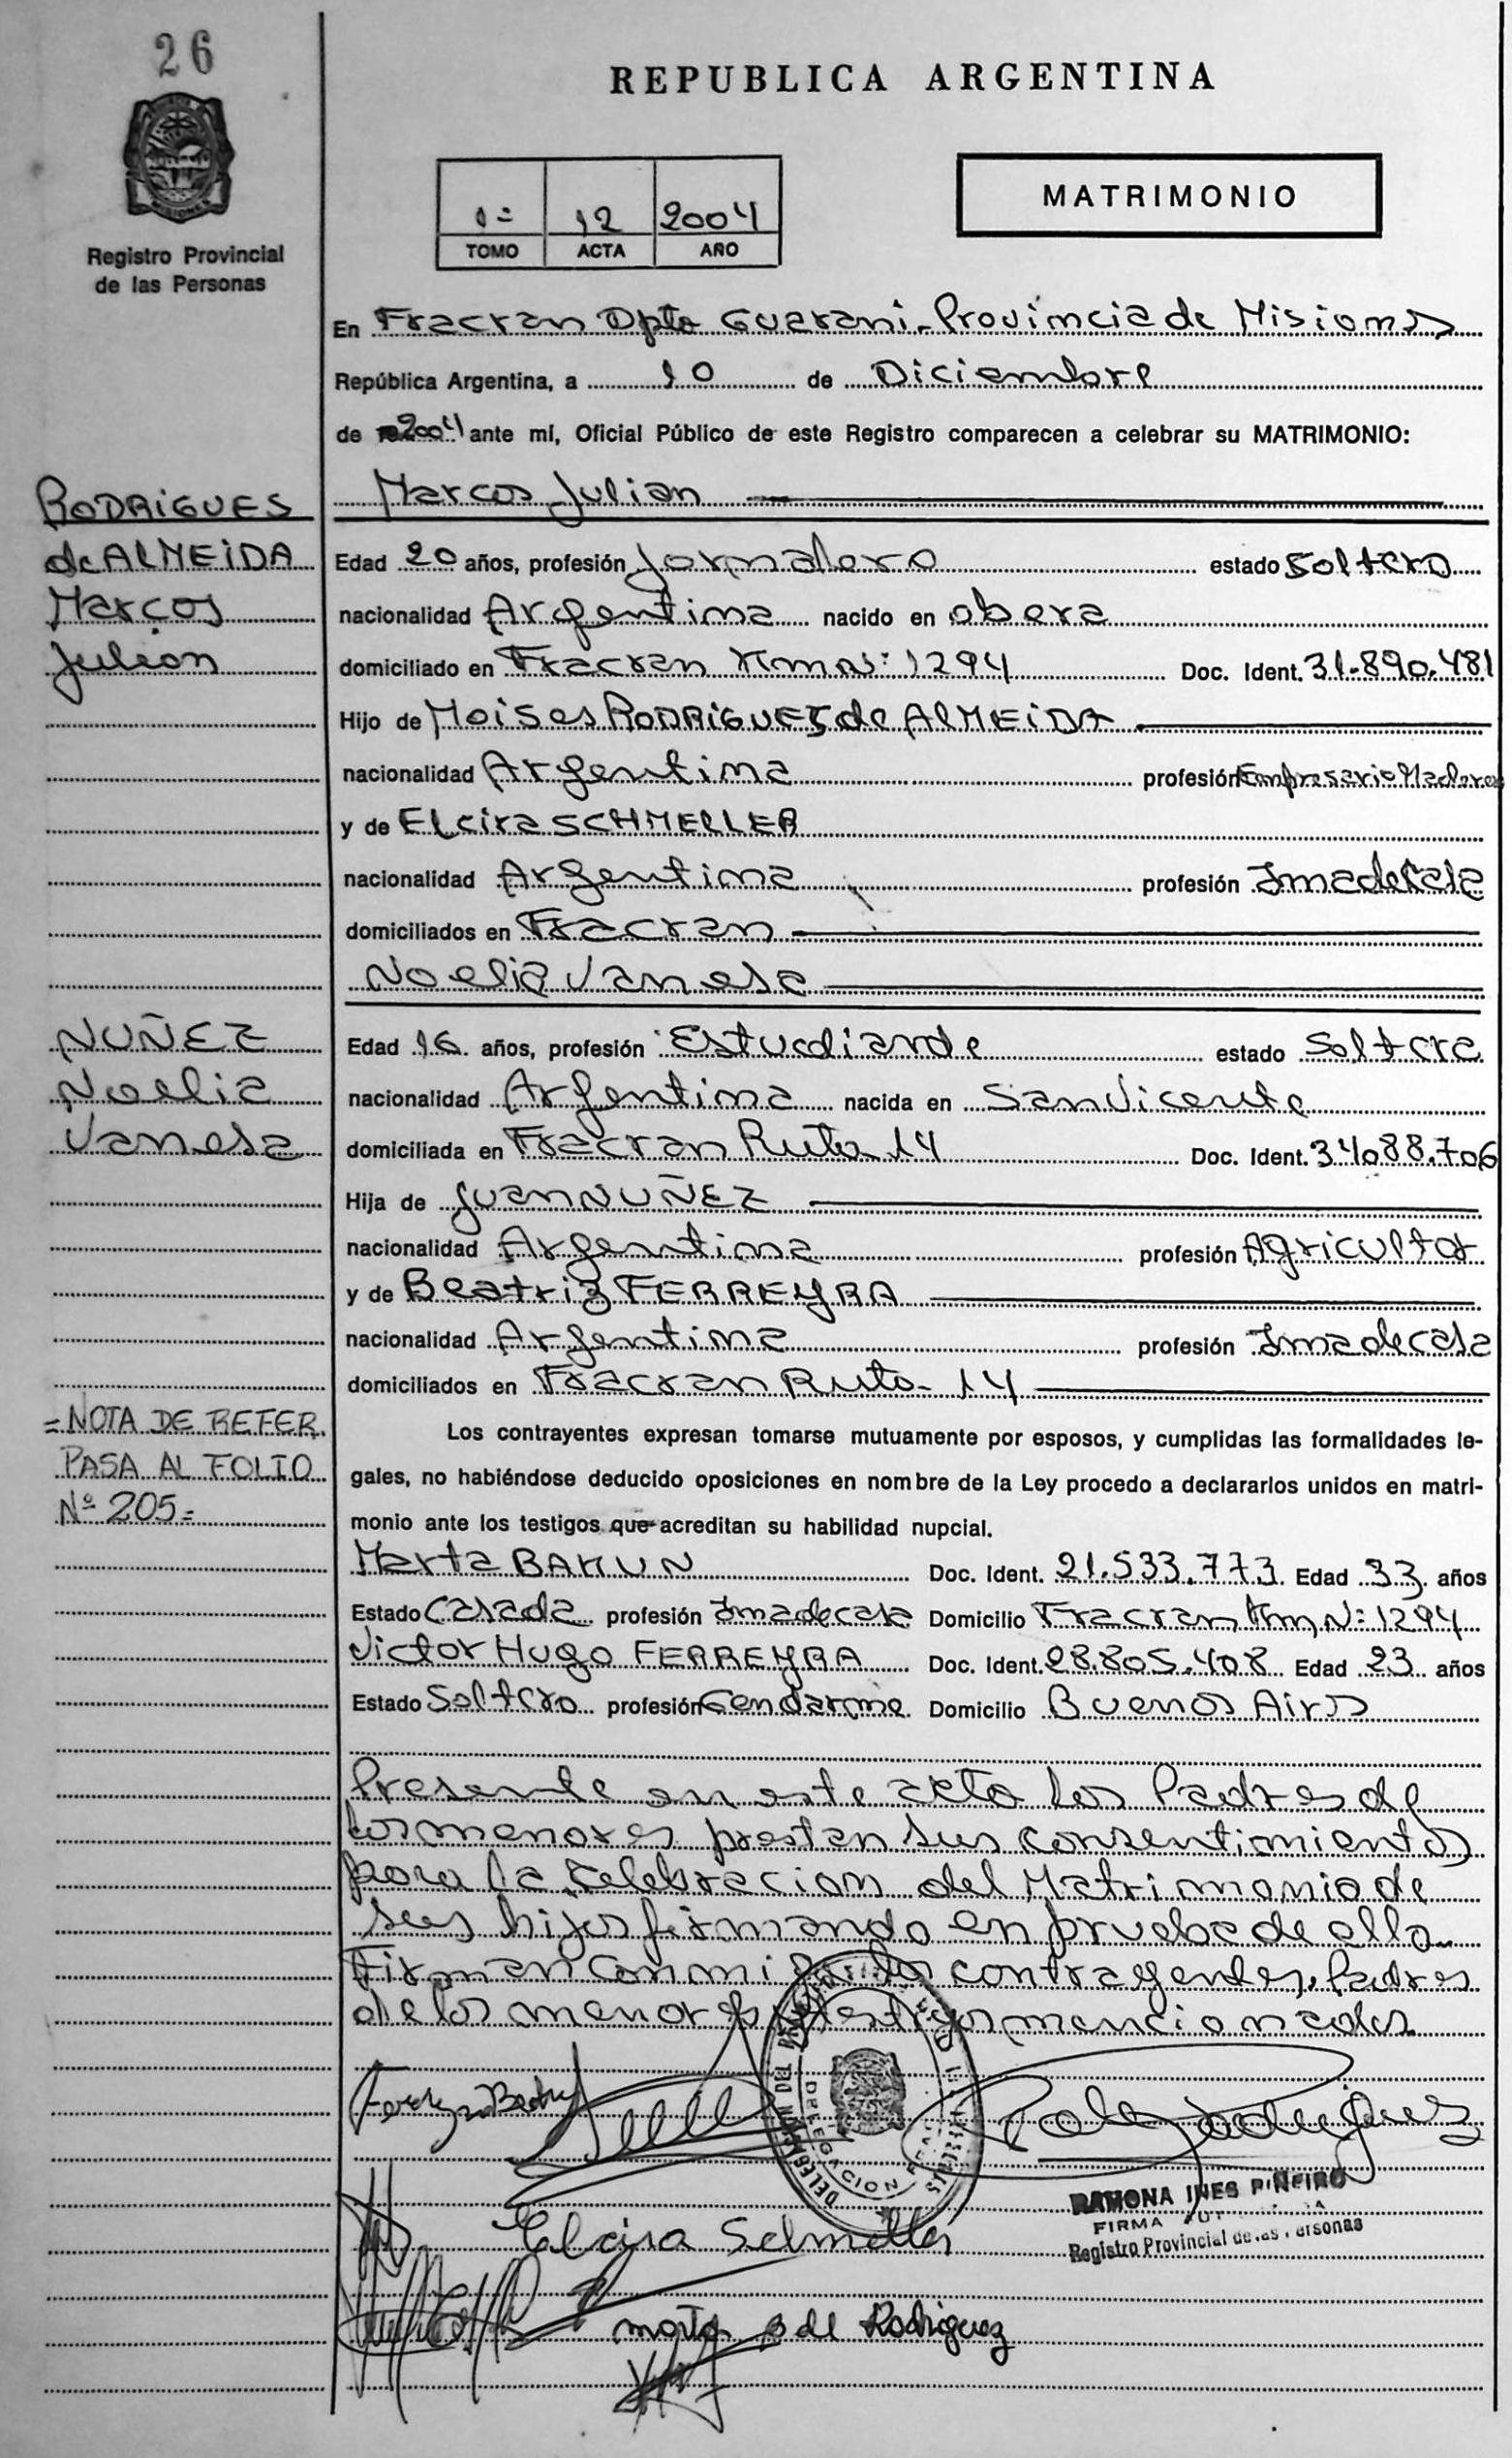 26
REPUBLICA ARGENTINA
MISIONES
Registro Provincial
de las Personas
1= 12 2004
TOMO ACTA AÑO
MATRIMONIO
En Fracran Dpto Guarani-Provincia de Misiones
República Argentina, a 10 de Diciembre
de 2004 ante mí, Oficial Público de este Registro comparecen a celebrar su MATRIMONIO:
RODRIGUES
de ALMEIDA
Marcos
Julian
Marcos Julian
Edad 20 años, profesión Jornalero estado Soltero
nacionalidad Argentina nacido en obera
domiciliado en Fracran Km Nº: 1294 Doc. Ident. 31.890.481
Hijo de Moises RODRIGUES de ALMEIDA
nacionalidad Argentina profesión Empresario Maderero
y de Elcira SCHMELLER
nacionalidad Argentina profesión Ama de Casa
domiciliados en Fracran
Noelia Vanesa
NUÑEZ
Noelia
Vanesa
Edad 16 años, profesión Estudiante estado Soltera
nacionalidad Argentina nacida en San Vicente
domiciliada en Fracran Ruta 14 Doc. Ident. 34.088.706
Hija de Juan NUÑEZ
nacionalidad Argentina profesión Agricultor
y de Beatriz FERREYRA
nacionalidad Argentina profesión Ama de casa
domiciliados en Fracran Ruta-14
=NOTA DE REFER.
PASA AL FOLIO
Nº 205=
Los contrayentes expresan tomarse mutuamente por esposos, y cumplidas las formalidades le-
gales, no habiéndose deducido oposiciones en nombre de la Ley procedo a declararlos unidos en matri-
monio ante los testigos que acreditan su habilidad nupcial.
Marta BAKUN Doc. Ident. 21.533.773 Edad 33 años
Estado Casada profesión Ama de casa Domicilio Fracran Km Nº: 1294
Victor Hugo FERREYRA Doc. Ident. 28.805.408 Edad 23 años
Estado Soltero profesión Gendarme Domicilio Buenos Aires
Presente en este acto los Padres de
los menores prestan sus consentimientos
para la celebracion del Matrimonio de
sus hijos firmando en prueba de ello-
Firman conmigo los contrayentes, Padres
de los menores y testigos mencionados
DELEGACION
Elcira Schmeller
RAMONA INES PIÑEIRO
FIRMA
Registro Provincial de las Personas
marta B de Rodriguez